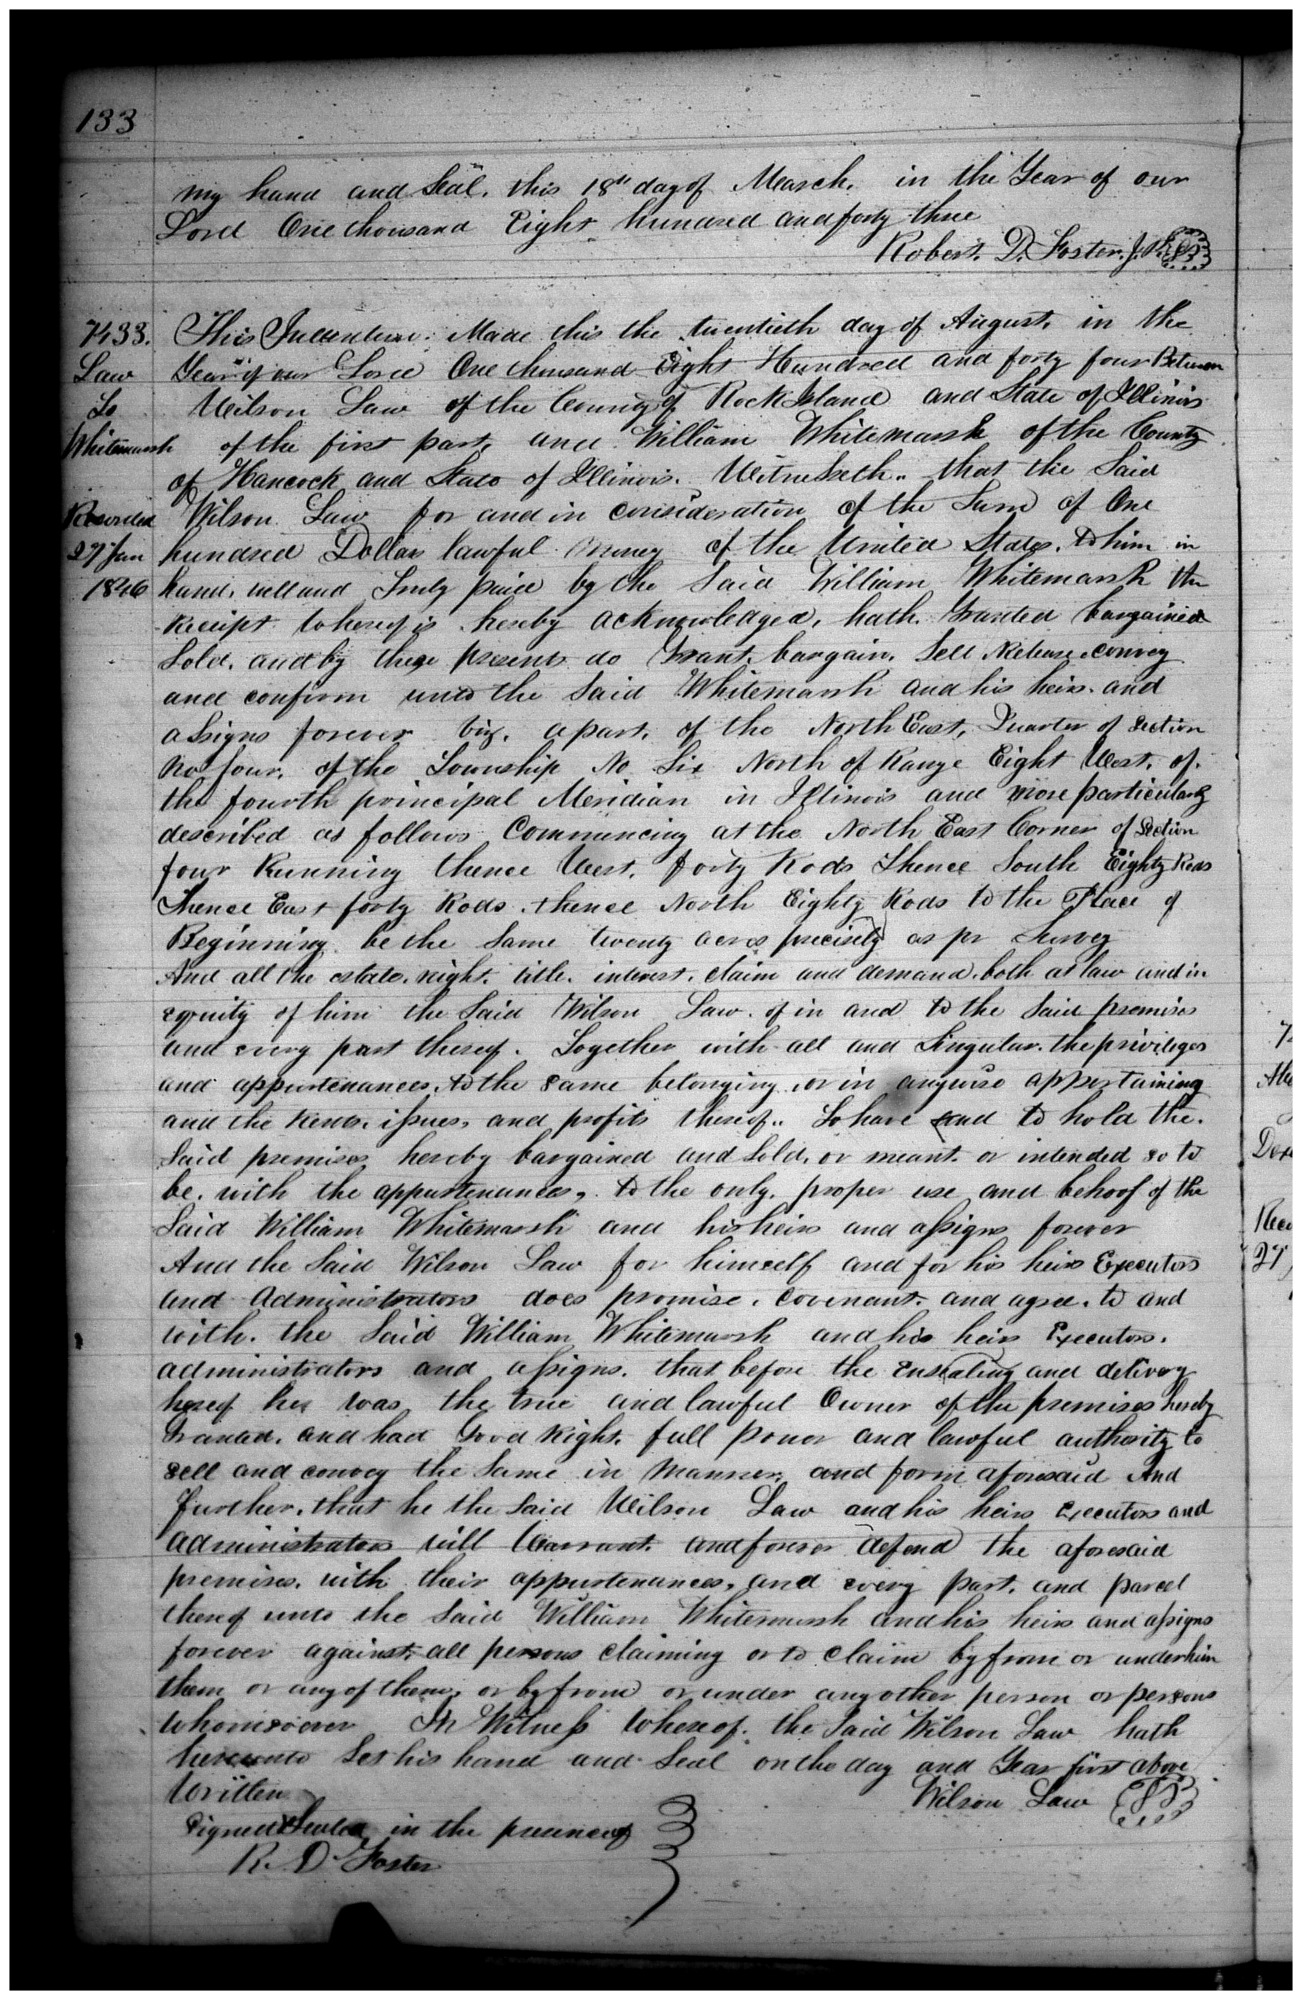 133
my hand and Seal, this 18th day of March, in the Year of our
Lord One thousand Eight hundred and forty three
Robert. D. Foster. J. P.
7433. This Indenture. Made this the twentieth day of August, in the
Law Year of our Lord One thousand Eight Hundred and forty four Between
To Wilson Law of the County of Rock Island and State of Illinois
Whitemarsh of the first part, and William Whitemarsh of the County
of Hancock and State of Illinois. Witnesseth.. that the Said
Recorded Wilson Law for and in consideration of the Sum of One
27 Jan hundred Dollars lawful money of the United States, to him in
1846 hand, well and truly paid by the Said William Whitemarsh the
receipt whereof is hereby acknowledged, hath Granted bargained
Sold, and by these presents do Grant, bargain, Sell Release convey
and confirm unto the Said Whitemarsh and his heirs and
assigns forever viz. a part, of the North East, Quarter of Section
No four, of the Township No Six North of Range Eight West, of
the fourth principal Meridian in Illinois and more particularly
described as follows Commencing at the North East Corner of Section
four Running thence West, forty Rods Thence South Eighty Rods
Thence East forty Rods, thence North Eighty Rods to the Place of
Beginning, be the Same twenty acres precisely as pr Survey
And all the estate, right, title, interest, claim and demand, both at law and in
equity of him the Said Wilson Law, of in and to the Said premises
and every part thereof. Together with all and Singular the privileges
and appurtenances, to the same belonging, or in anywise appertaining
and the Rents, issues, and profits thereof.. To have and to hold the
Said premises hereby bargained and Sold, or meant or intended so to
be, with the appurtenances, to the only, proper use and behoof of the
Said William Whitemarsh and his heirs and assigns forever
And the Said Wilson Law for himself and for his heirs Executors
and Administrators does promise, covenant, and agree, to and
with, the Said William Whitemarsh and his heirs Executors,
administrators and assigns, that before the ensealing and delivery
hereof he was the true and lawful Owner of the premises hereby
Granted, and had Good Right, full power and lawful authority to
sell and convey the Same in Manner, and form aforesaid And
further, that he the Said Wilson Law and his heirs Executors and
Administrators will Warrant, and forever defend the aforesaid
premises, with their appurtenances, and every part, and parcel
thereof unto the Said William Whitemarsh and his heirs and assigns
forever against, all persons claiming or to claim by from or under him
them or any of them, or by from or under any other person or persons
whomsoever In Witness whereof, the Said Wilson Law hath
hereunto Set his hand and Seal on the day and Year first above
Written Wilson Law
Signed & Sealed in the presence of
R. D. Foster